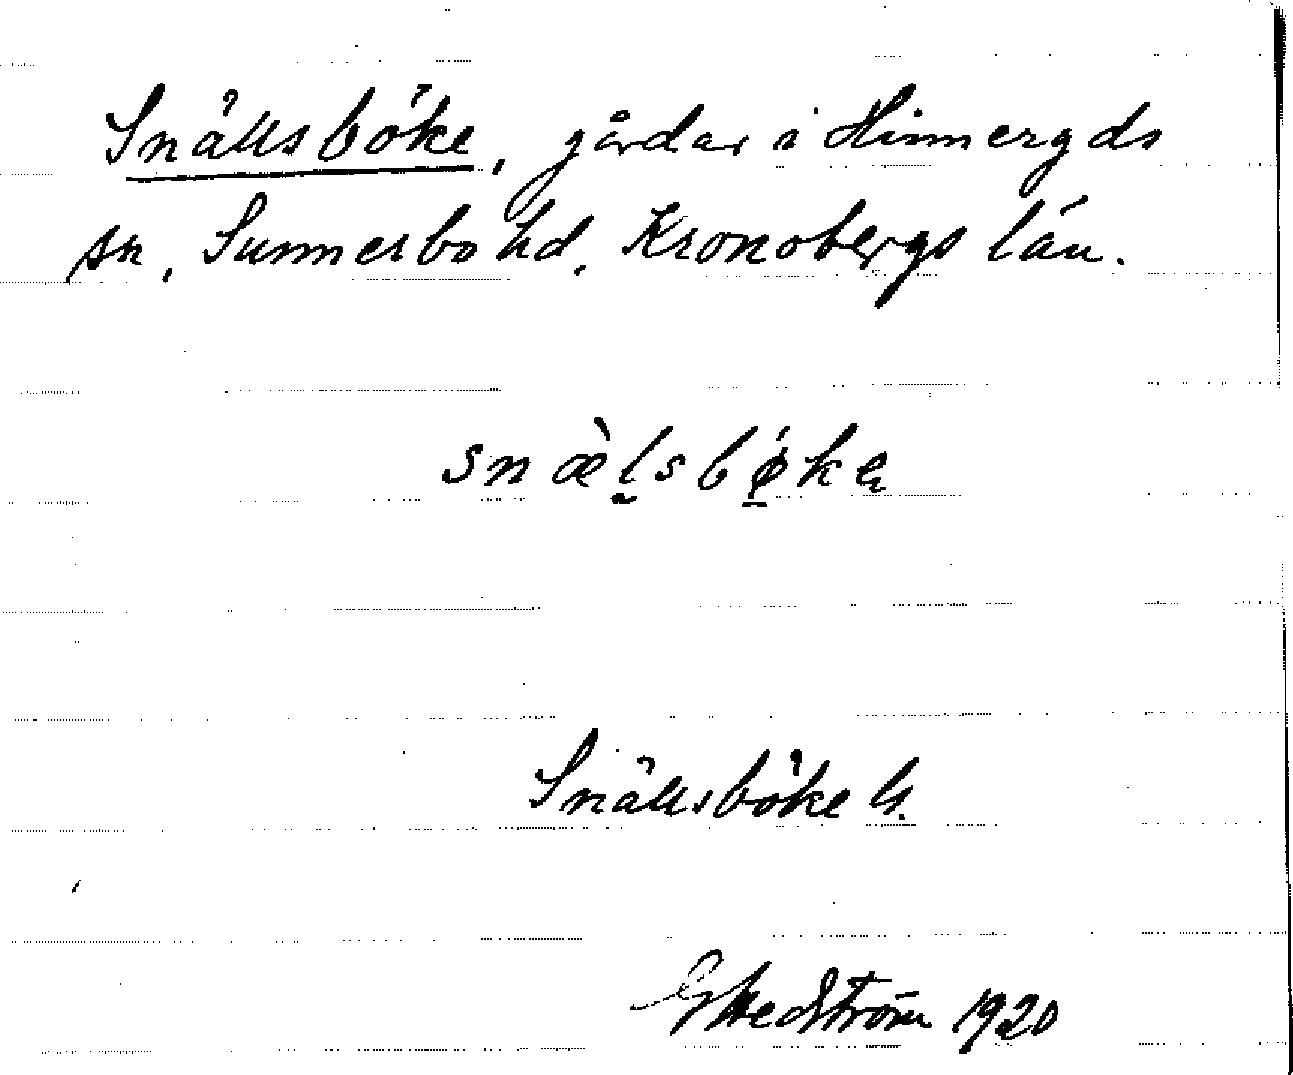 Snällsböke, gårdar i Hinneryds
sn, Sunnerbo hd, Kronobergs län.
snæ̀lsbǿke
Snällsböke G.
G Hedström 1920